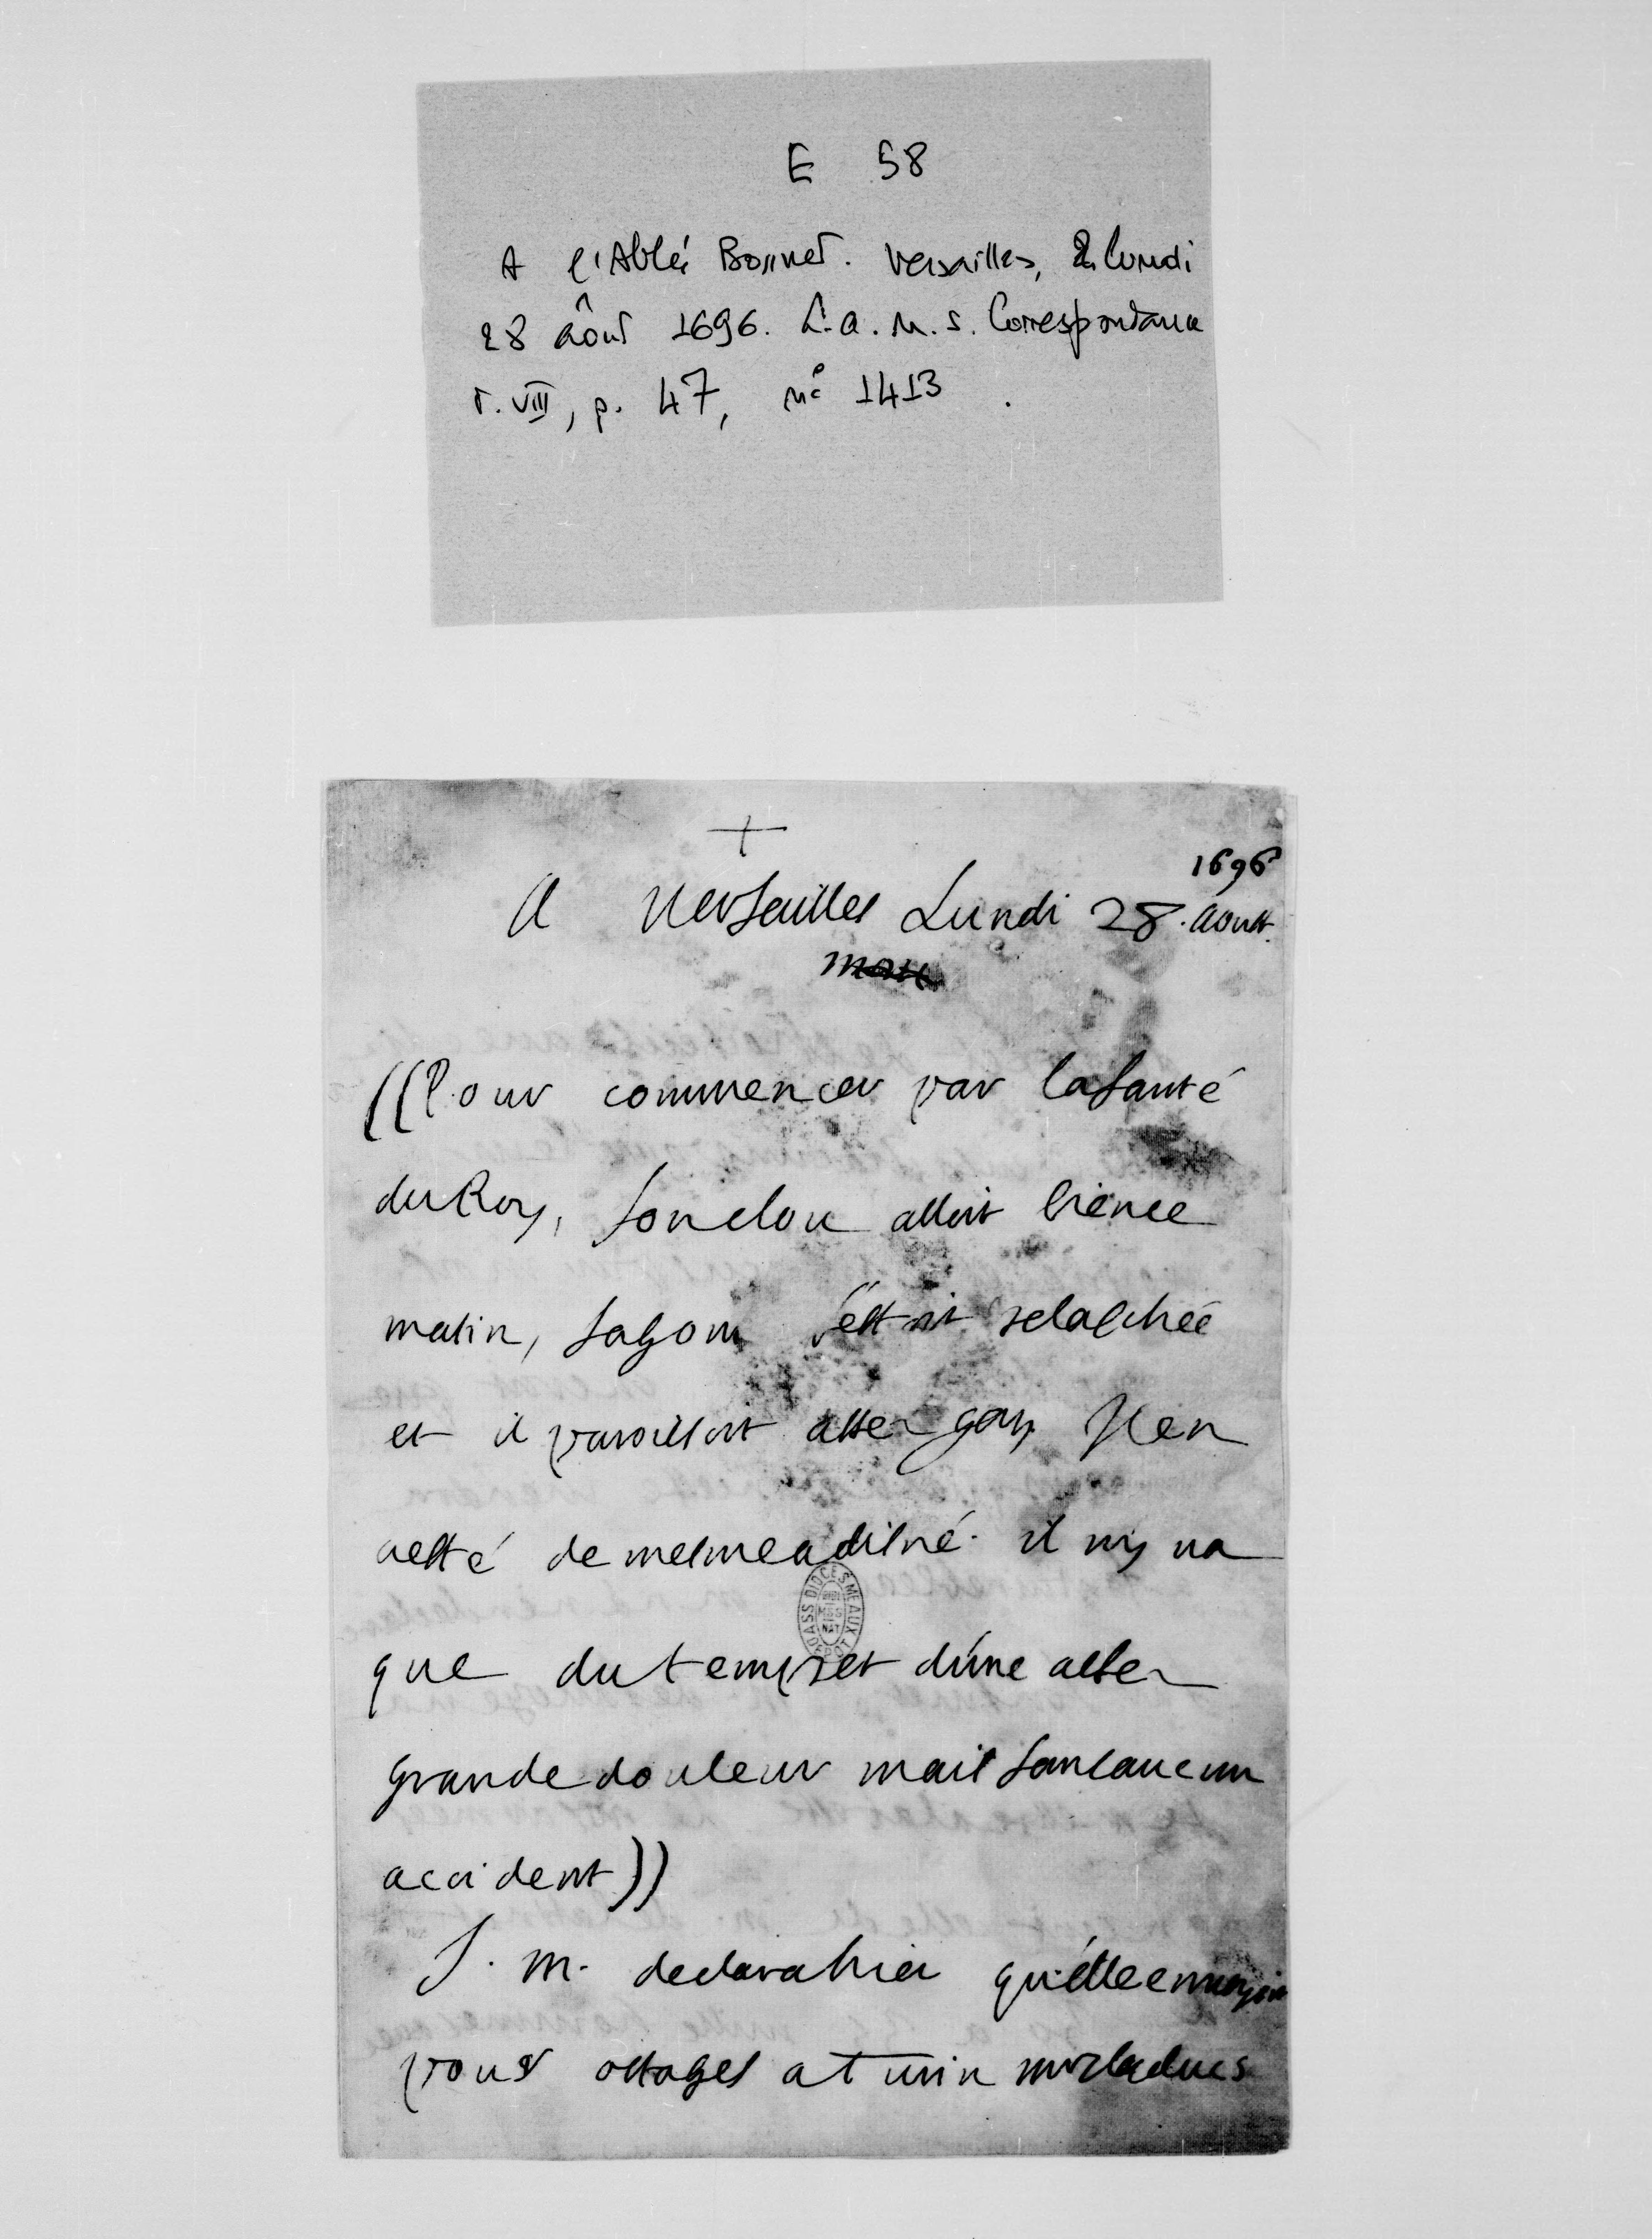 E 58
A l'Abbé Bonnet. Versailles, lundi
28 août 1696. L. a. n. s. Correspondance
T. VIII, p. 47, n° 1413.
+
1696
A Versailles Lundi 28. aoust.
((Pour commencer par lasanté
du Roy, son clou alloit bien ce
matin, sa gom s'estoit relaschée
et il paroissoit assez gay. Il en
a esté de mesme a disné. il ny va
que du temps et d'une assez
grande douleur mais sans aucun
accident))
S. M. declara hier qu'elle envoyoit
pour ostages a Turin mrs les ducs
ASS DIOCES MEAUX DEPOT